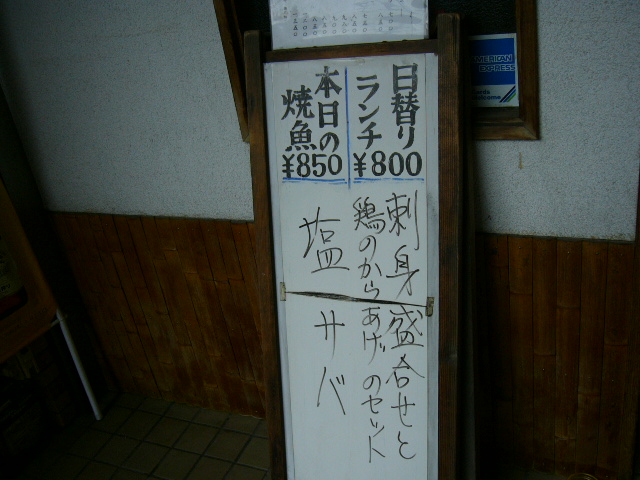 日替り
ランチ
¥800
刺身盛合せと
鶏のからあげのセット
本日の
焼魚
¥850
塩サバ
AMERICAN
EXPRESS